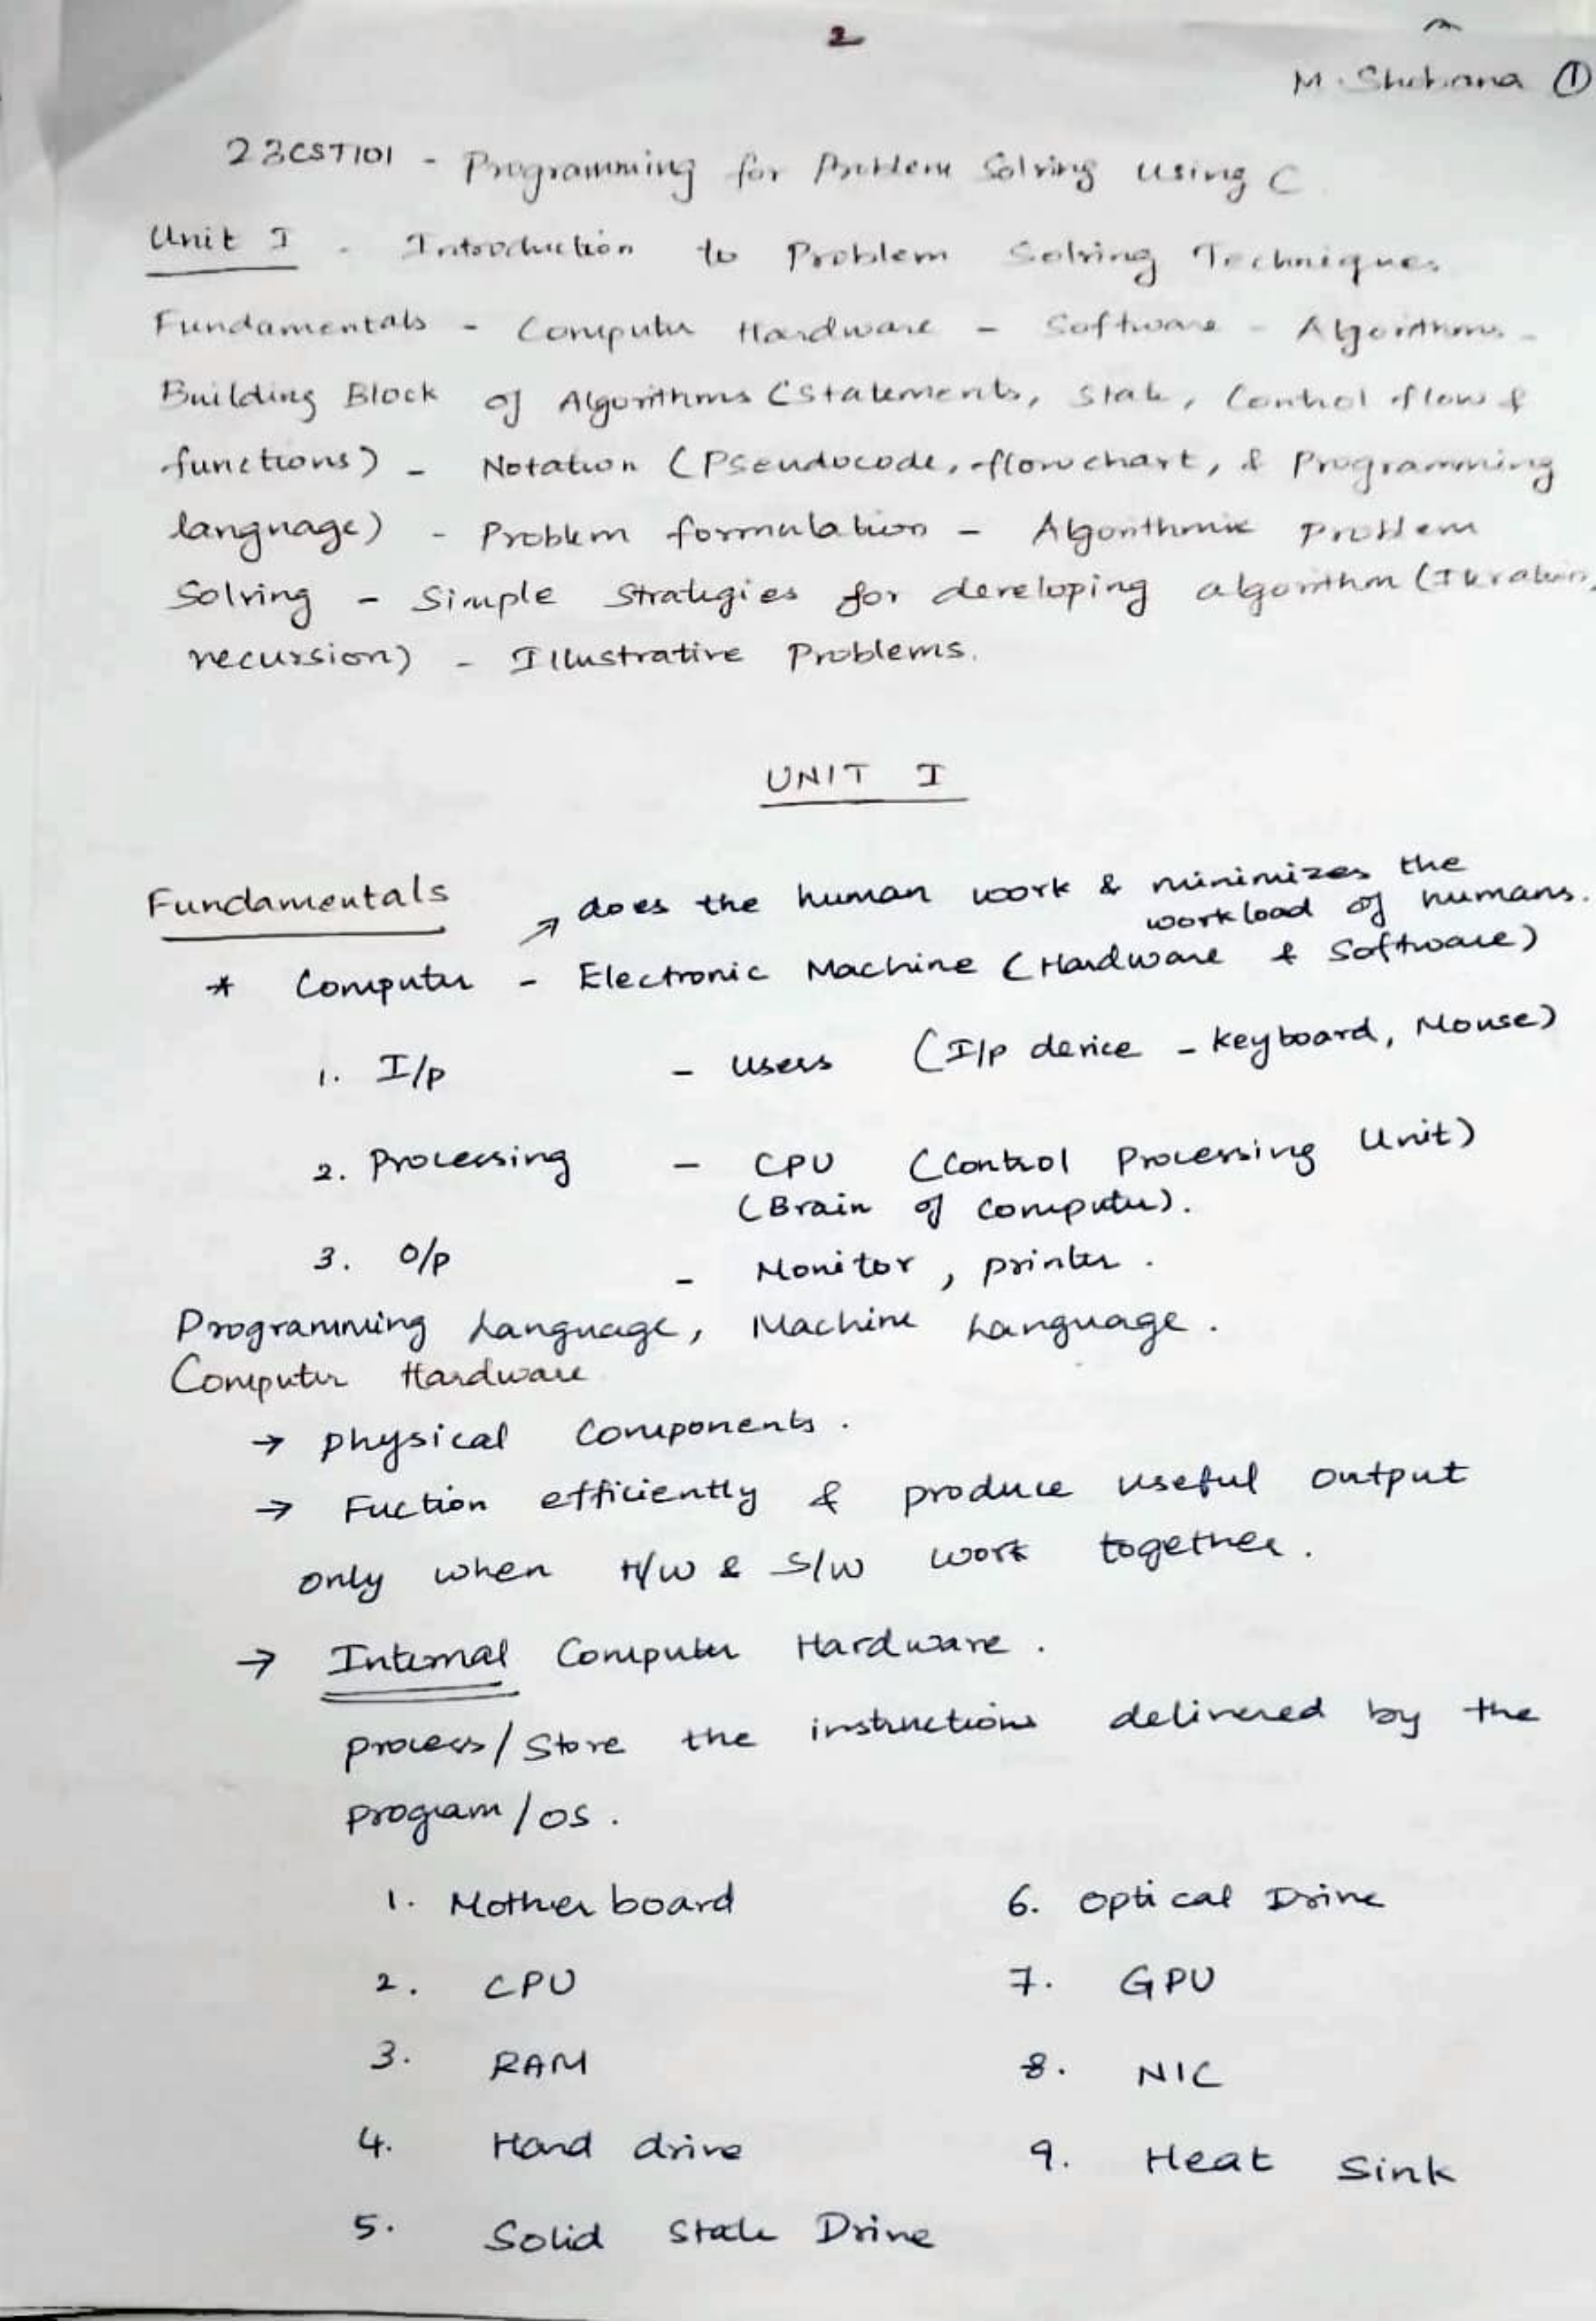 2
M. Shobana ①
23CST101 - Programming for Problem Solving using C
Unit I - Introduction to Problem Solving Techniques
Fundamentals - Computer Hardware - Software - Algorithms -
Building Block of Algorithms (Statements, State, Control flow &
functions) - Notation (Pseudocode, flowchart, & Programming
language) - Problem formulation - Algorithmic problem
Solving - Simple Strategies for developing algorithm (Iteration,
recursion) - Illustrative Problems.
UNIT I
Fundamentals
→ does the human work & minimizes the
workload of humans.
* Computer - Electronic Machine (Hardware & Software)
1. I/p - users (I/p device - keyboard, Mouse)
2. Processing - CPU (Control Processing Unit)
(Brain of computer).
3. O/p - Monitor, printer.
Programming Language, Machine Language.
Computer Hardware
→ physical Components.
→ Fuction efficiently & produce useful output
only when H/w & S/w work together.
→ Internal Computer Hardware.
process/Store the instructions delivered by the
program/OS.
1. Mother board
2. CPU
3. RAM
4. Hard drive
5. Solid State Drive
6. Optical Drive
7. GPU
8. NIC
9. Heat Sink